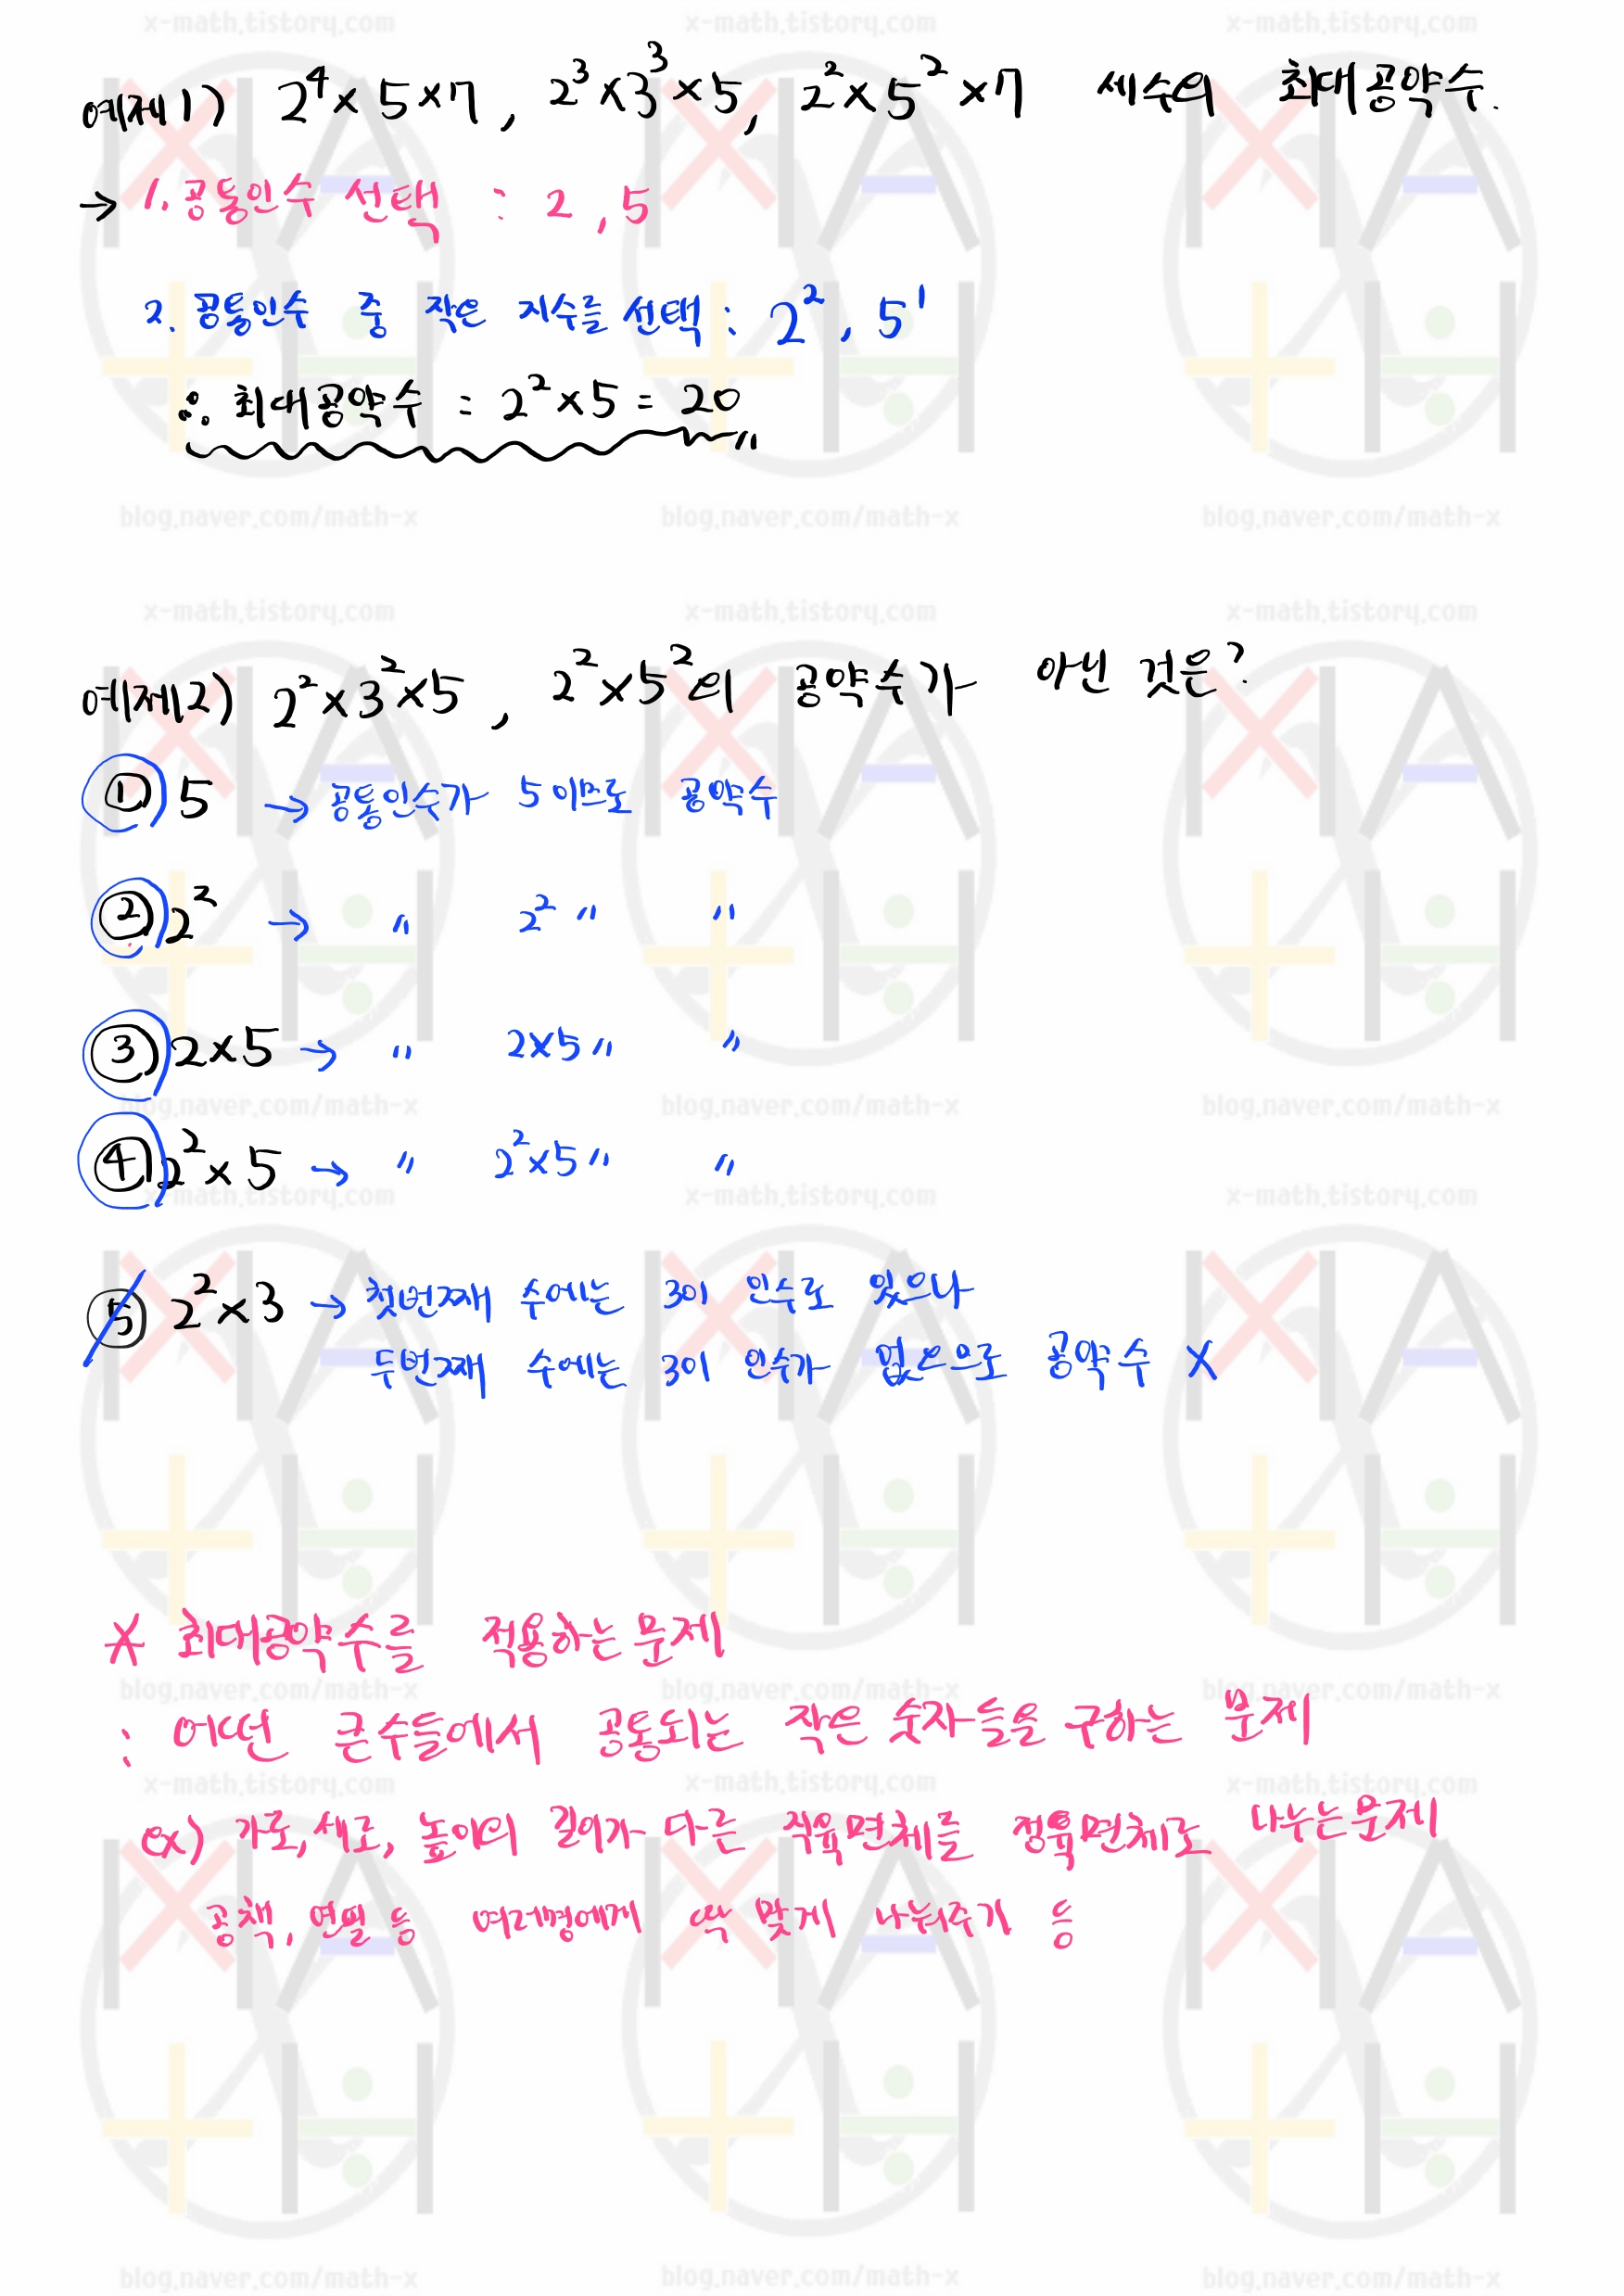 x-math.tistory.com x-math.tistory.com x-math.tistory.com
예제1) 2⁴×5×7, 2³×3³×5, 2²×5²×7 세수의 최대공약수.
→ 1. 공통인수 선택 : 2, 5
2. 공통인수 중 작은 지수를 선택 : 2², 5¹
∴ 최대공약수 : 2²×5 = 20 〃
blog.naver.com/math-x blog.naver.com/math-x blog.naver.com/math-x
x-math.tistory.com x-math.tistory.com x-math.tistory.com
예제2) 2²×3²×5, 2²×5²의 공약수가 아닌 것은?
① 5 → 공통인수가 5 이므로 공약수
② 2² → 〃 2² 〃 〃
③ 2×5 → 〃 2×5 〃 〃
blog.naver.com/math-x blog.naver.com/math-x blog.naver.com/math-x
④ 2²×5 → 〃 2²×5 〃 〃
x-math.tistory.com x-math.tistory.com x-math.tistory.com
⑤ 2²×3 → 첫번째 수에는 3이 인수로 있으나
두번째 수에는 3이 인수가 없으므로 공약수 X
* 최대공약수를 적용하는 문제
blog.naver.com/math-x blog.naver.com/math-x blog.naver.com/math-x
: 어떤 큰수들에서 공통되는 작은 숫자들을 구하는 문제
x-math.tistory.com x-math.tistory.com x-math.tistory.com
ex) 가로, 세로, 높이의 길이가 다른 직육면체를 정육면체로 나누는 문제
공책, 연필 등 여러명에게 딱 맞게 나눠주기 등
blog.naver.com/math-x blog.naver.com/math-x blog.naver.com/math-x